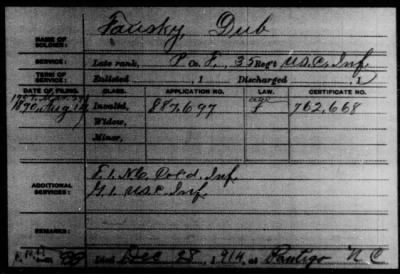 NAME OF SOLDIER: Fausky, Dub
SERVICE: Late rank, Pvt, 35 Reg't U.S.C. Inf.
TERM OF SERVICE: Enlisted , 1 Discharged , 1
DATE OF FILING. CLASS. APPLICATION NO. LAW. CERTIFICATE NO.
1890 Aug Invalid, 887,697 762,668
Widow,
Minor,
ADDITIONAL SERVICES: F. 1. N.C. Col'd. Inf.
G. 1. U.S.C. Inf.
REMARKS:
Died Dec 28, 1914, at Pantego N C